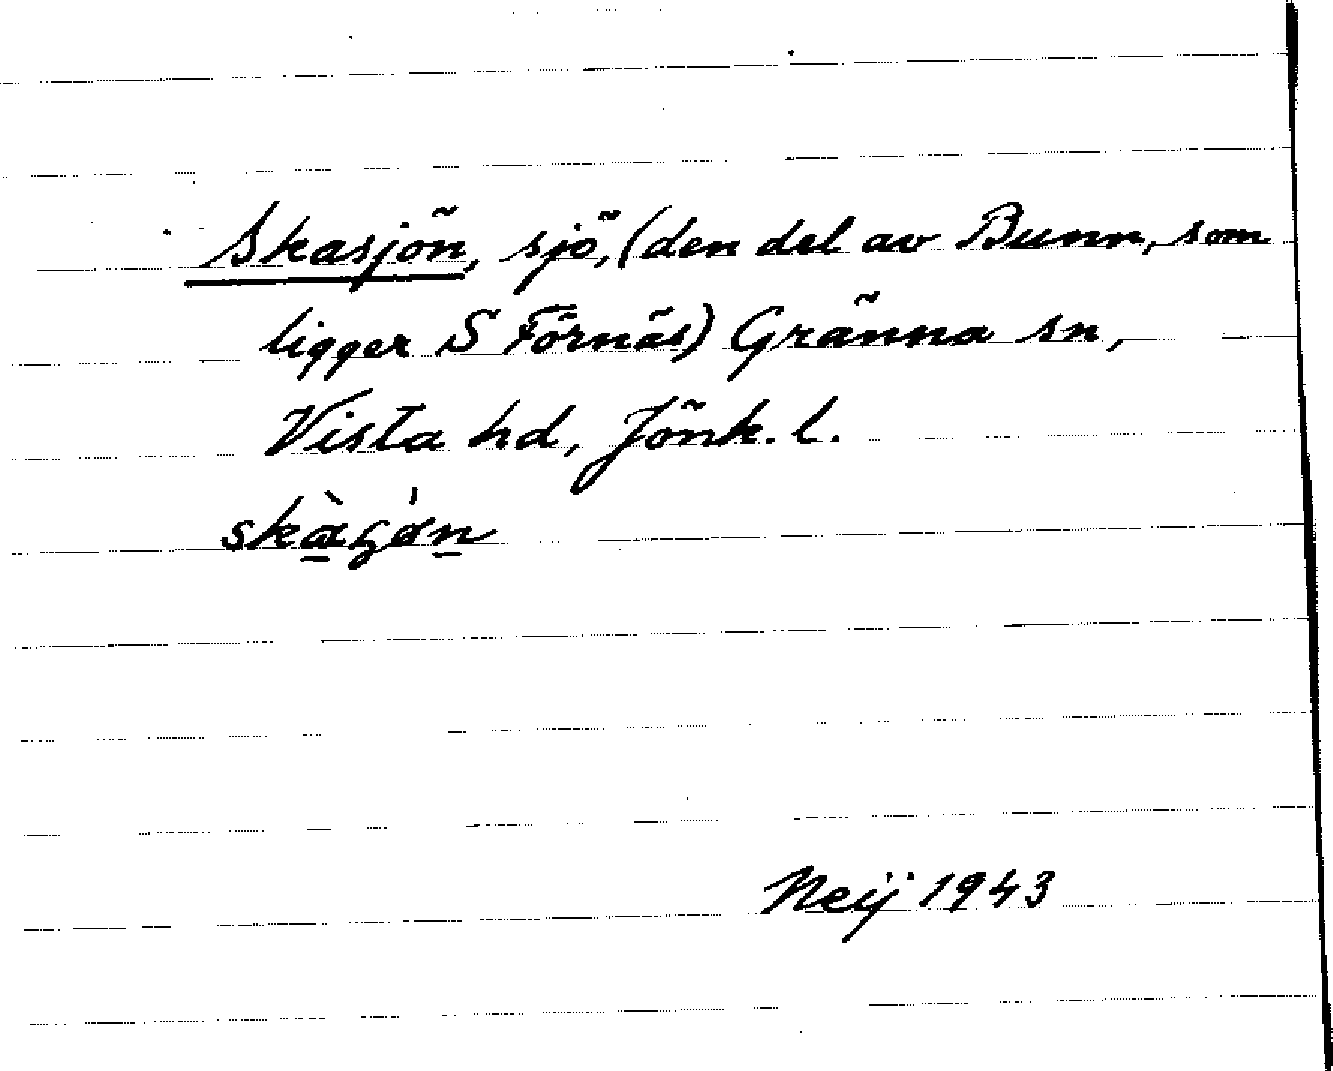 Skasjön, sjö, (den del av Bunn, som
ligger S Förnäs) Gränna sn,
Vista hd, Jönk. l.
Neij 1943